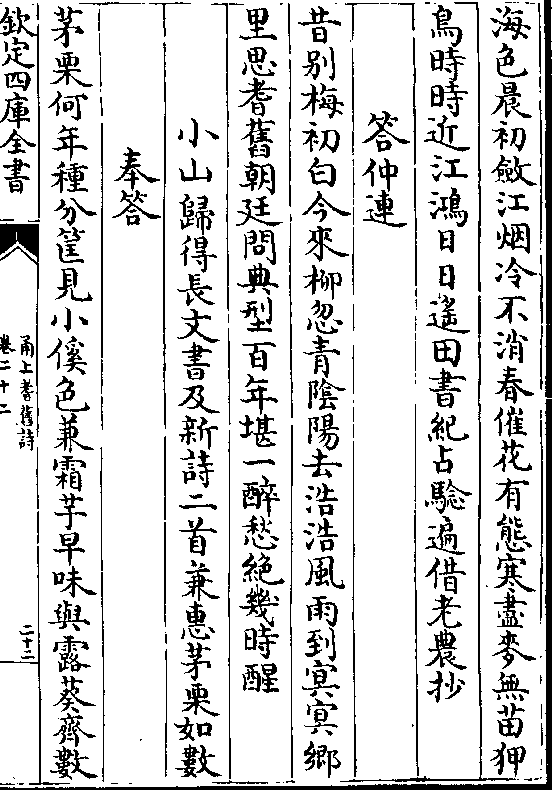 海色晨初斂江烟冷不消春催花有態寒盡麥無苗狎
鳥時時近江鴻日日遙田書紀占驗遍借老農抄
答仲連
昔别梅初白今來柳忽青陰陽去浩浩風雨到冥冥鄉
里思耆舊朝廷問典型百年堪一醉愁絶幾時醒
小山歸得長文書及新詩二首兼惠茅栗如數
奉答
茅栗何年種分筐見小傒色兼霜芋早味與露葵齊數
欽定四庫全書
甬上耆舊詩
卷二十二
二十二